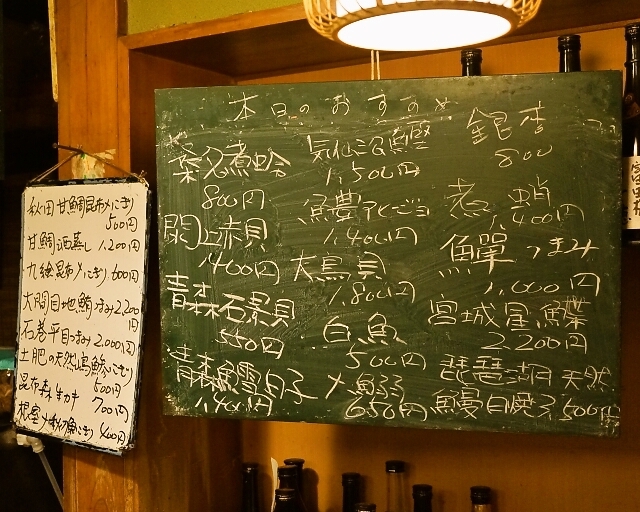 本日のおすすめ
桑名煮蛤
800円
閖上赤貝
1,400円
青森石景貝
550円
青森鱈白子
1,400円
気仙沼鰹
1,500円
1,400円
大鳥貝
1,800円
白魚
500円
〆鰯
650円
銀杏
800
煮蛸
1,400円
つまみ
1,000円
宮城星鰈
2,200円
琵琶湖天然
鰻白焼3,500円
秋田甘鯛昆布〆にぎり
500円
甘鯛酒蒸し 1,200円
九絵昆布〆にぎり 600円
大間目地鮪つまみ2,200円
石巻平目つまみ2,000円
土肥の天然縞鯵にぎり
500円
昆布森生カキ
700円
根室〆秋刀魚にぎり 400円